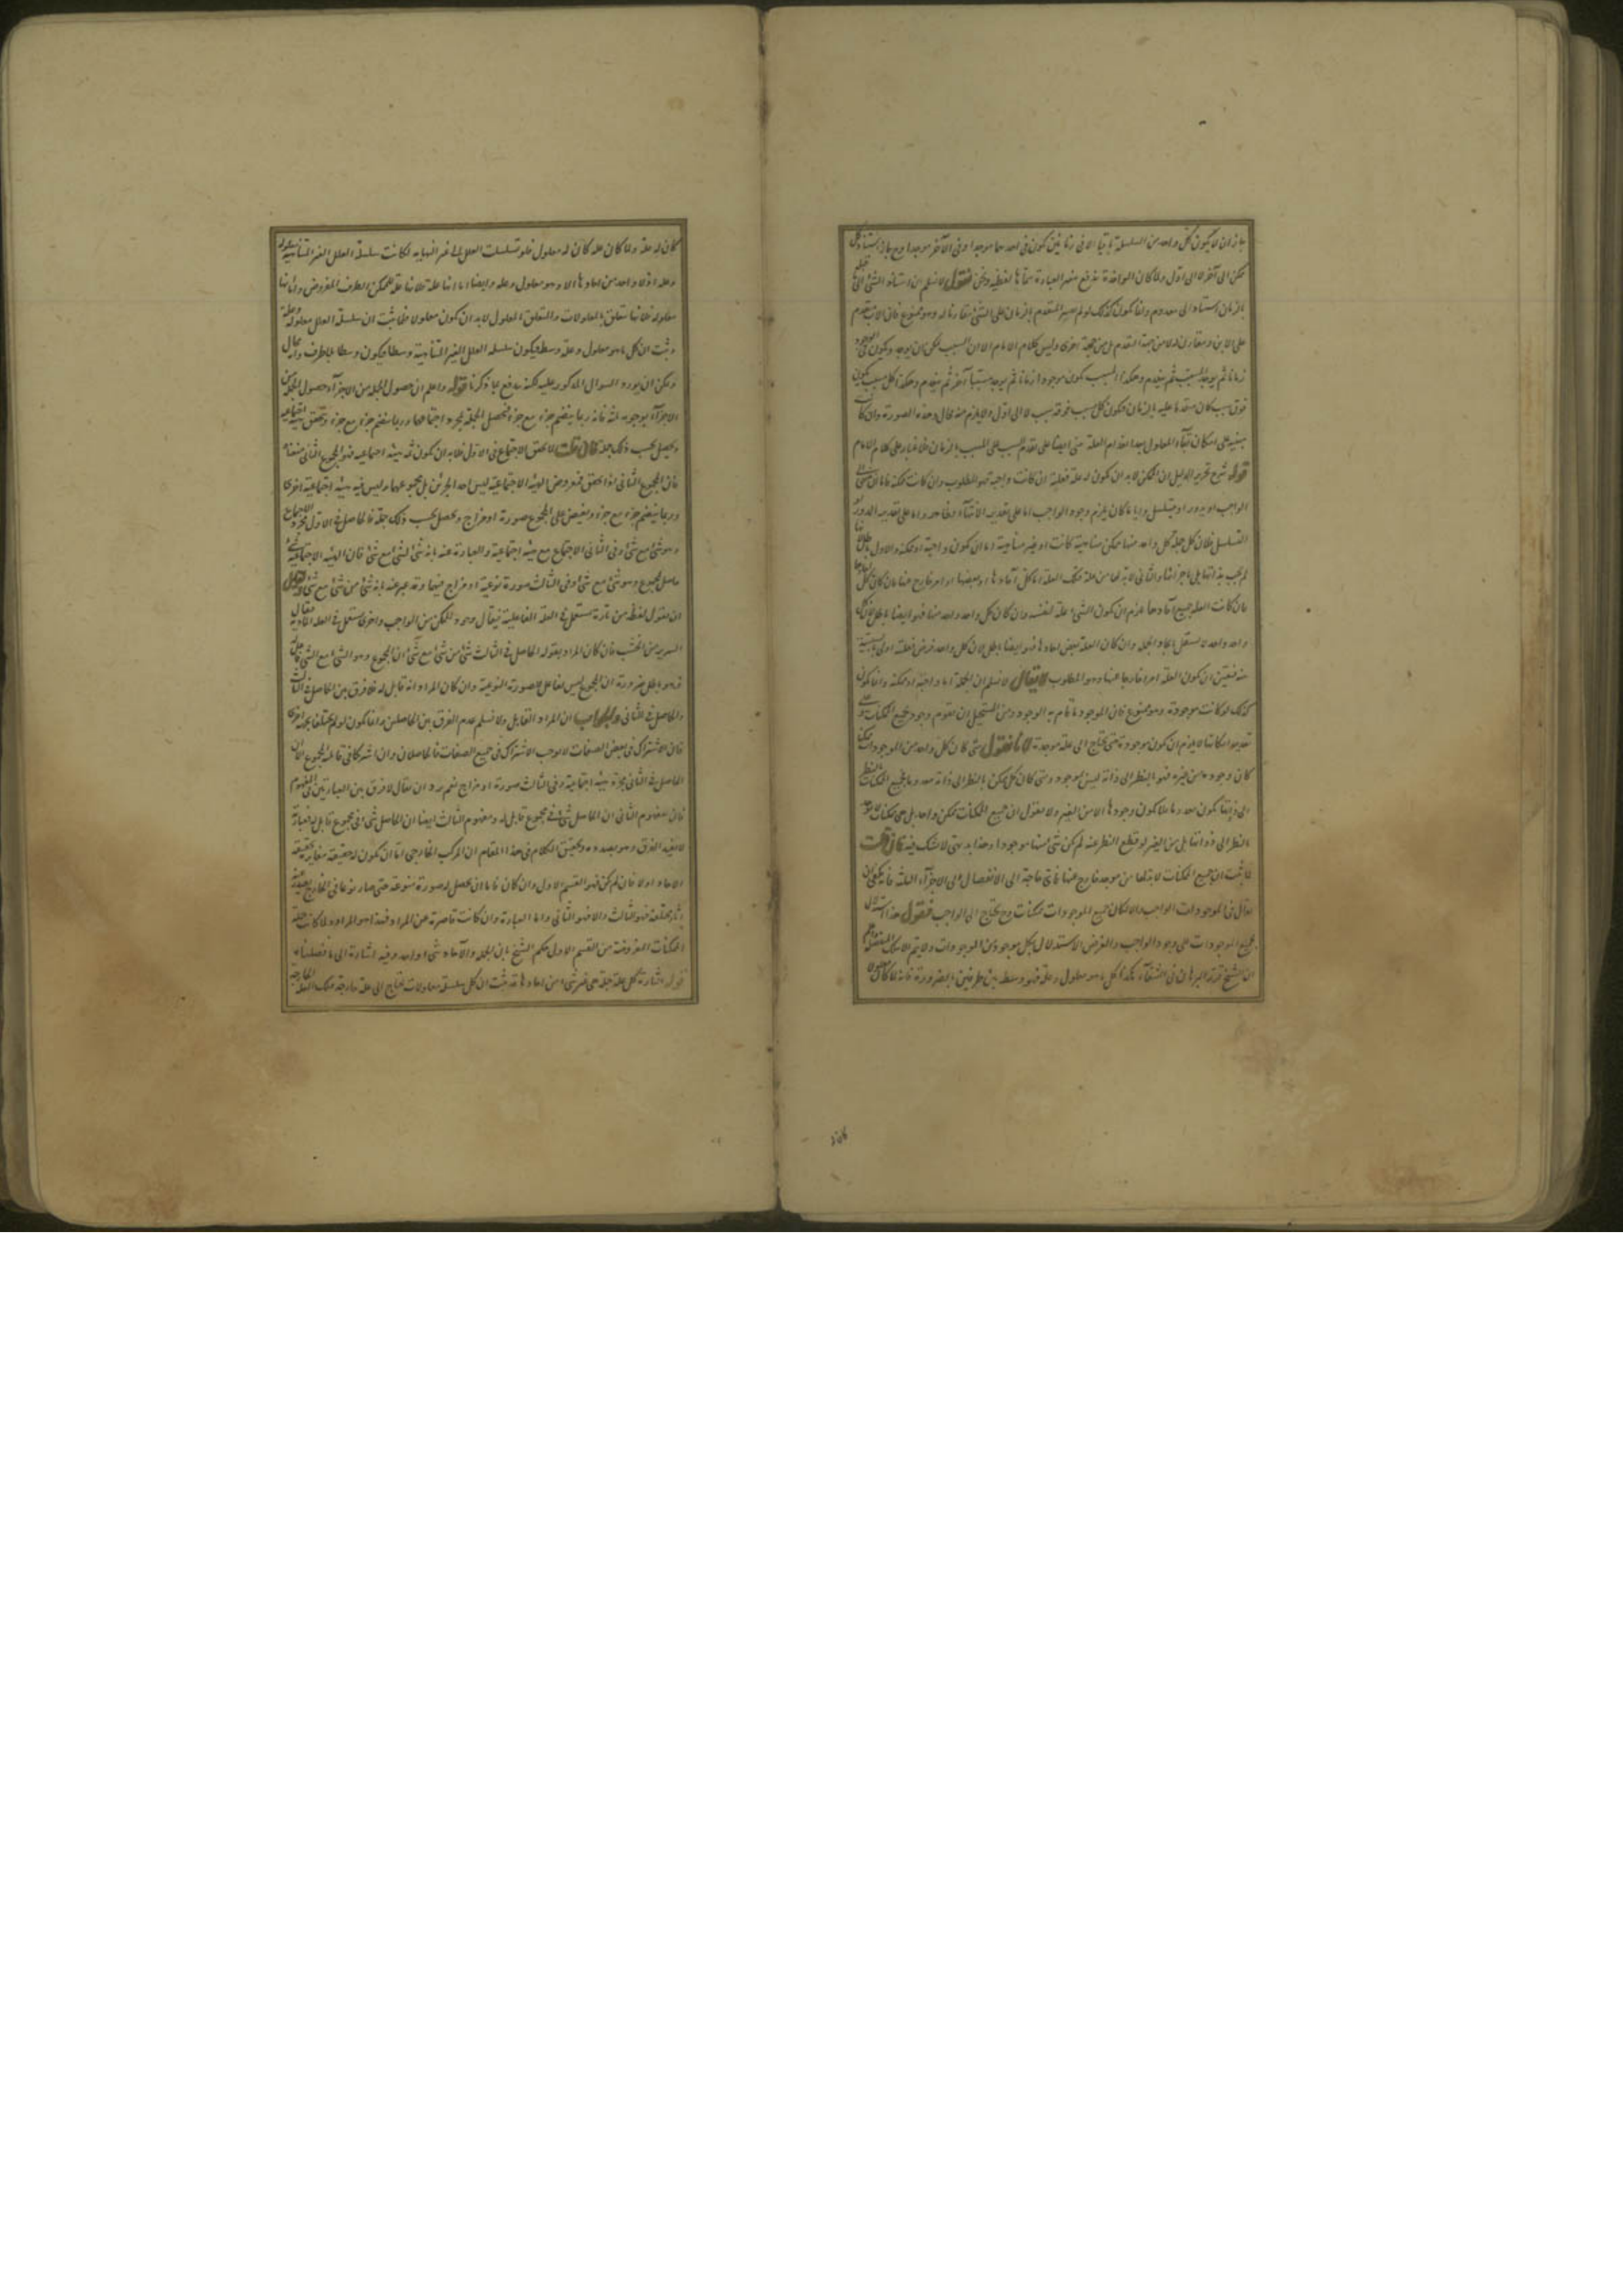 جاز ان لا يكون كل واحد من السلسلة باقيا الا فى زمانين يكون فى احدهما موجدا وفى الآخر موجدا وح جاز استناد كل
ممكن الى آخر لا الى اول ولما كان المواخذة ترفع بتغير العبارة سماها لفظية ونحن فنقول لا نسلم ان استناد الشئ الى
بالزمان استناد الى معدوم وانما يكون كذلك لو لم يصر المتقدم بالزمان على الشئ مقارنا له وهو ممنوع فان الاب متقدم
على الابن ومقارن له لا من جهة التقدم بل من جهة اخرى وليس كلام الامام الا ان السبب يمكن ان يوجد ويكون
زمانا ثم يوجد المسبب ثم ينعدم وهكذا السبب يكون موجودا زمانا ثم يوجد سببا آخر ثم ينعدم وهكذا كل سبب يكون
فوق سبب كان متقدما عليه بالزمان فيكون كل سبب فوقه سبب لا الى اول ولا يلزم منه محال وهذه الصورة وان كانت
مبنية على امكان بقاء المعلول بعد انعدام العلة حتى ايضا على تقدم السبب على المسبب بالزمان فلا غبار على كلام الامام
قوله شرح تحرير الدليل ان الممكن لا بد ان يكون له علة فعلية ان كانت واجبة فهو المطلوب وان كانت ممكنة فاما ان ينتهى
الواجب او يدور او يتسلسل واياما كان يلزم وجود الواجب اما على تقدير الانتهاء فظاهر واما على تقدير الدور
التسلسل فلان كل جملة كل واحد منها ممكن متناهية كانت او غير متناهية اما ان يكون واجبة او ممكنة والاول باطل
لم يجب بذاتها بل باجزائها والثانى لا بد لها من علة فتلك العلة اما كل آحادها او بعضها او امر خارج عنها فان كان كل
فان كانت العلة جميع آحادها يلزم ان يكون الشئ علة لنفسه وان كان كل واحد واحد منها فهو ايضا باطل
واحد واحد لا يستقل بايجاد الجملة وان كان العلة بعض آحادها فهو ايضا باطل لان كل واحد فرض فعلته اولى بالسببية
منه فتعين ان يكون العلة امرا خارجا عنها وهو المطلوب لا يقال لا نسلم ان الجملة اما واجبة او ممكنة وانما يكون
كذلك لو كانت موجودة وهو ممنوع فان الموجود ما قام به الوجود ومن المستحيل ان يقوم وجود بجميع الممكنات
تقدير امكانها لا يلزم ان يكون موجودة حتى يحتاج الى علة موجدة لانا نقول متى كان كل واحد من الموجودات ممكنا
كان وجوده من غيره فهو بالنظر الى ذاته ليس بموجود ومتى كان كل ممكن بالنظر الى ذاته معدوما فجميع الممكنات بالنظر
الى ذواتها يكون معدوما فلا يكون وجودها الا من الغير ولا نقول ان جميع الممكنات ممكن واحد بل هى ممكنات
بالنظر الى ذواتها بل من الغير لو قطع النظر عنه لم يكن شئ منها موجودا وهذا بديهى لا شك فيه فان قلت
لما ثبت ان جميع الممكنات لا بد لها من موجد خارج عنها فاى حاجة الى الانفصال الى الاجزاء الثلثة فانه يكفى ان
يقال فى الموجودات الواجب والا لكان جميع الموجودات ممكنات وح يحتاج الى الواجب فنقول هذا استدلال
بجميع الموجودات على وجود الواجب والغرض الاستدلال بكل موجود من الموجودات ولا يتم الا بتلك المنفصلة
ان الشيخ قرر البرهان فى الشفاء بكذا كل ما هو معلول وعلة فهو وسط بين طرفين بالضرورة فانه لما كان معلولا
كان له علة ولما كان علة كان له معلول فلو تسلسلت العلل الى غير النهاية لكانت سلسلة العلل الغير المتناهية معلولة
وعلة اذ لا واحد من آحادها الا وهو معلول وعلة وايضا اما انها علة فلانها علة للممكن الطرف المفروض واما انها
معلولة فلانها تتعلق بالمعلولات والمتعلق بالمعلول لا بد ان يكون معلولا فلما ثبت ان سلسلة العلل معلولة وعلة
وثبت ان كل ما هو معلول وعلة وسط فيكون سلسلة العلل الغير المتناهية وسطا فيكون وسطا بلا طرف وانه محال
ويمكن ان يورد السوال المذكور عليه لكنه يدفع بما ذكرنا قوله واعلم ان حصول الجملة من الاجزاء حصول الجملة من
الاجزاء بوجوه ثلثة فانه ربما ينضم جزء مع جزء فتحصل الجملة بمجرد اجتماعهما وربما ينضم جزء مع جزء وتحقق هيئة اجتماعية
ويحصل بحسب ذلك جملة فان قلت لا تحقق الاجتماع فى الاول فلا بد ان يكون ثمه هيئة اجتماعية فهو المجموع الثانى فنقول
فان المجموع الثانى اذا تحقق فمعروض الهيئة الاجتماعية ليس احد الجزئين بل مجموعهما وليس فيه هيئة اجتماعية اخرى
وربما ينضم جزء مع جزء ويفيض على المجموع صورة او مزاج ويحصل بحسب ذلك جملة فالحاصل فى الاول مجرد الاجتماع
وهو شئ مع شئ وفى الثانى الاجتماع مع هيئة اجتماعية والعبارة عنه بانه شئ لشئ مع شئ فان الهيئة الاجتماعية شئ
حاصل لمجموع وهو شئ مع شئ وفى الثالث صورة نوعية او مزاج فيهما وقد عبر عنه بانه شئ من شئ مع شئ ولقائل
ان يقول لفظ من تارة تستعمل فى العلة الفاعلية فيقال وجود الممكن من الواجب واخرى تستعمل فى العلة المادية يقال
السرير من الخشب فان كان المراد بقوله الحاصل فى الثالث شئ من شئ مع شئ ان المجموع وهو الشئ مع الشئ فاعل
فهو باطل ضرورة ان المجموع ليس بفاعل للصورة النوعية وان كان المراد انه قابل له فلا فرق بين الحاصل فى الثالث
والحاصل فى الثانى والجواب ان المراد القابل ولا نسلم عدم الفرق بين الحاصلين وانما يكون لو لم يختلفا بجهة اخرى
فان الاشتراك فى بعض الصفات لا يوجب الاشتراك فى جميع الصفات فالحاصلان وان اشتركا فى قابلية المجموع الا ان
الحاصل فى الثانى مجرد هيئة اجتماعية وفى الثالث صورة او مزاج نعم يرد ان يقال لا فرق بين العبارتين فى المفهوم
فان مفهوم الثانى ان الحاصل شئ فى مجموع قابل له ومفهوم الثالث ايضا ان الحاصل شئ فى مجموع قابل له فعبارته
لا يفيد الفرق وهو بصدده وتحقيق الكلام فى هذا المقام ان المركب الخارجى اما ان يكون له حقيقة مغايرة لحقيقة
الآحاد او لا فان لم يكن فهو القسم الاول وان كان فاما ان يحصل له صورة منوعة حتى صار نوعا فى الخارج
آثار مختلفة فهو الثالث والا فهو الثانى واما العبارة وان كانت قاصرة عن المراد فهذا هو المراد ولما كانت جملة
الممكنات المفروضة من القسم الاول حكم الشيخ بان الجملة والآحاد شئ واحد وفيه اشارة الى ما فصلناه
قوله اشارة كل علة جملة هى غير شئ من آحادها قد ثبت ان كل سلسلة معلولات تحتاج الى علة خارجة فتلك العلة الخارجة